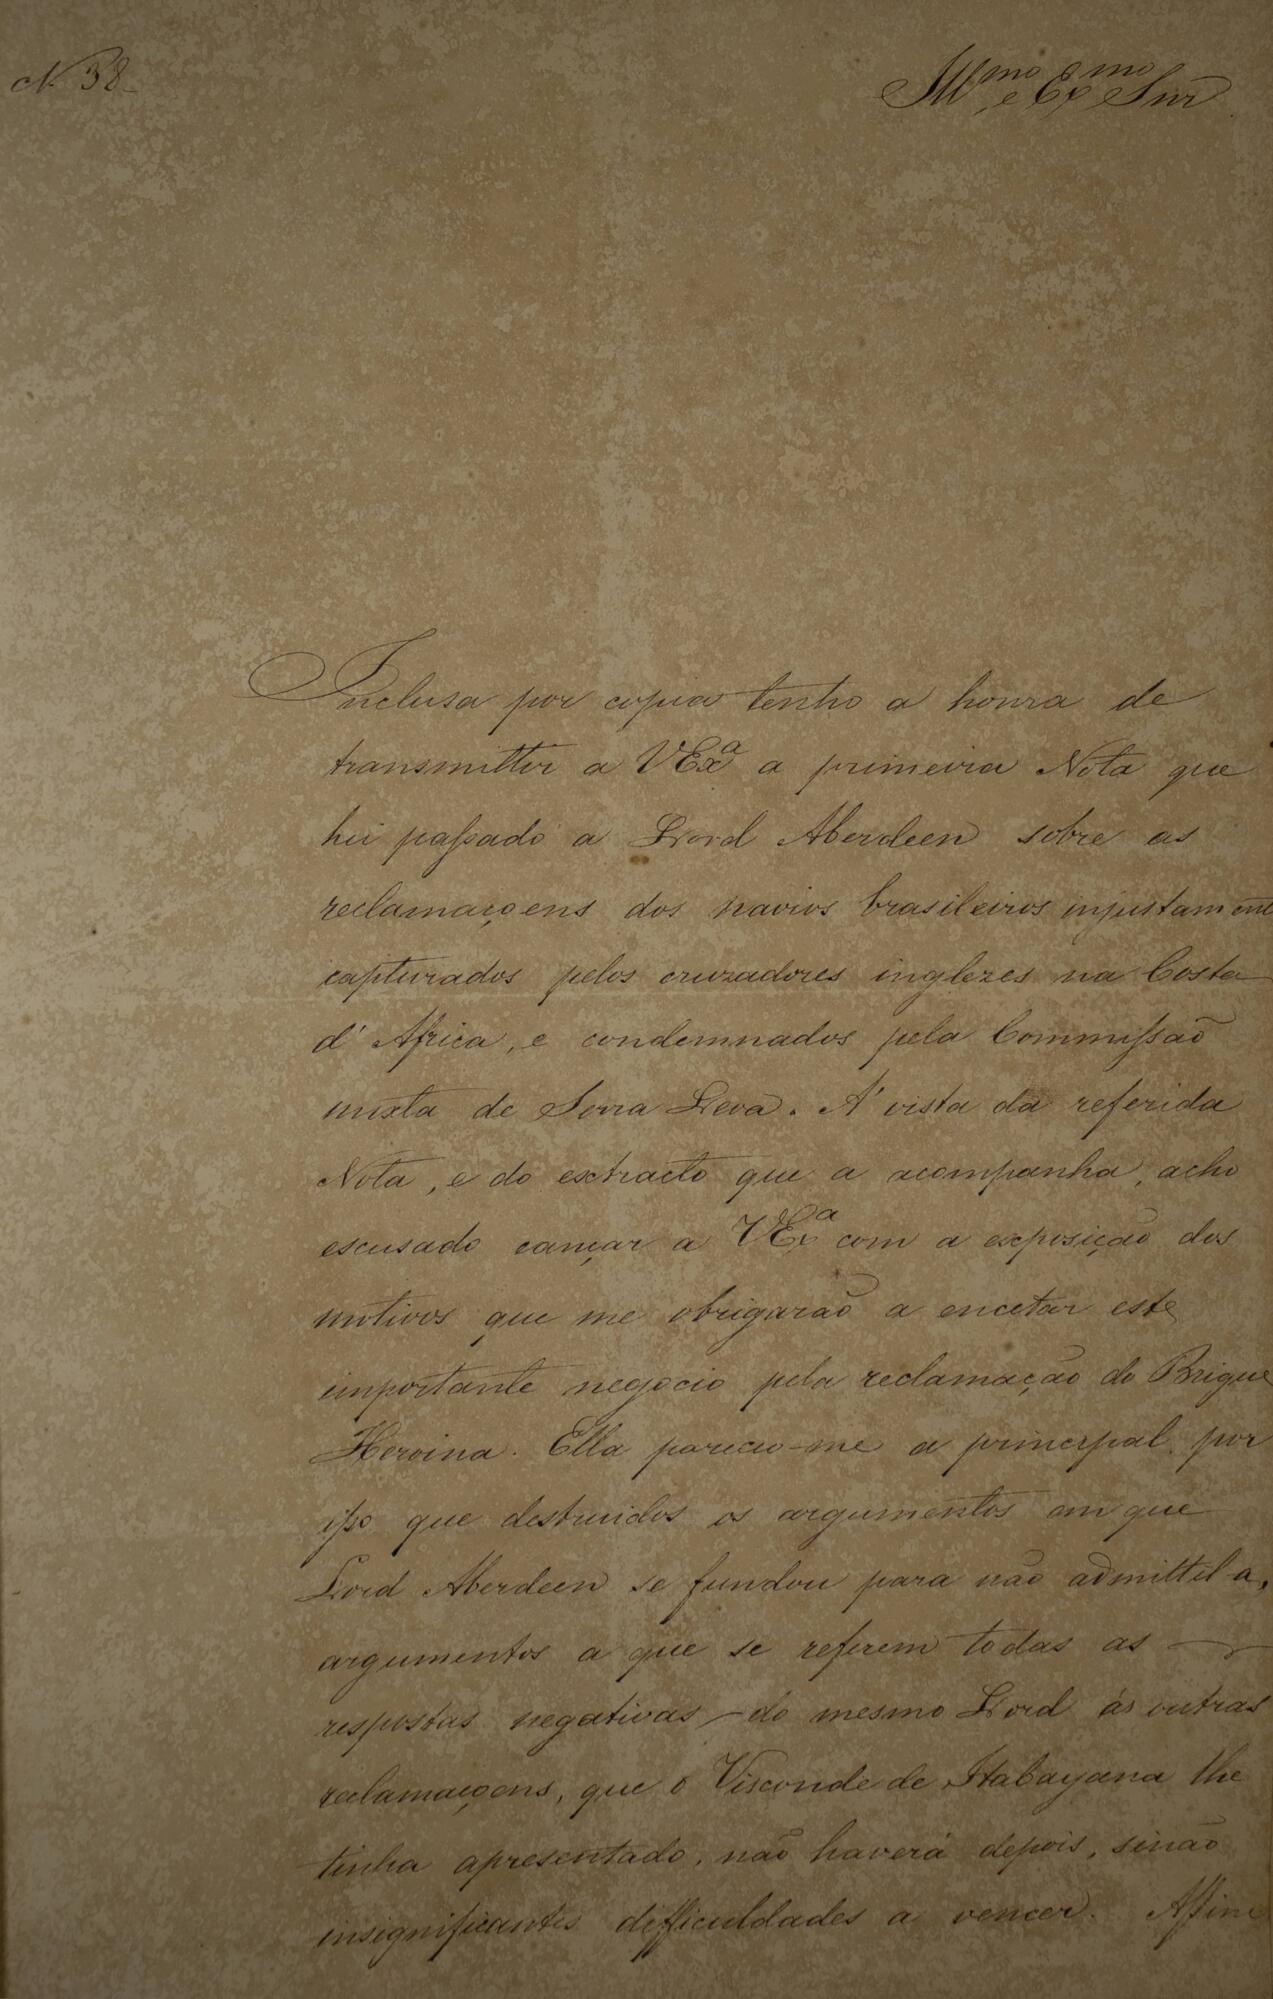 N. 38
Illmo e Exmo Snr
Inclusa por copia tenho a honra de
transmittir a VExa a primeira Nota que
hei passado a Lord Aberdeen sobre as
reclamaçoens dos navios brasileiros injustament
capturados pelos cruzadores inglezes na Costa
d'Africa, e condemnados pela Commissaõ
mixta de Serra Leoa. A' vista da referida
Nota, e do extracto que a acompanha, acho
escusado cançar a VExa com a exposiçaõ dos
motivos que me obrigaraõ a encetar este
importante negocio pela reclamaçaõ do Brigue
Heroina. Ella pareceo-me a principal por
isso que destruidos os argumentos em que
Lord Aberdeen se fundou para naõ admittil-a,
argumentos a que se referem todas as
respostas negativas do mesmo Lord ás outras
reclamaçoens, que o Visconde de Itabayana lhe
tinha apresentado, naõ haverá depois, sinaõ
insignificantes difficuldades a vencer. Assim